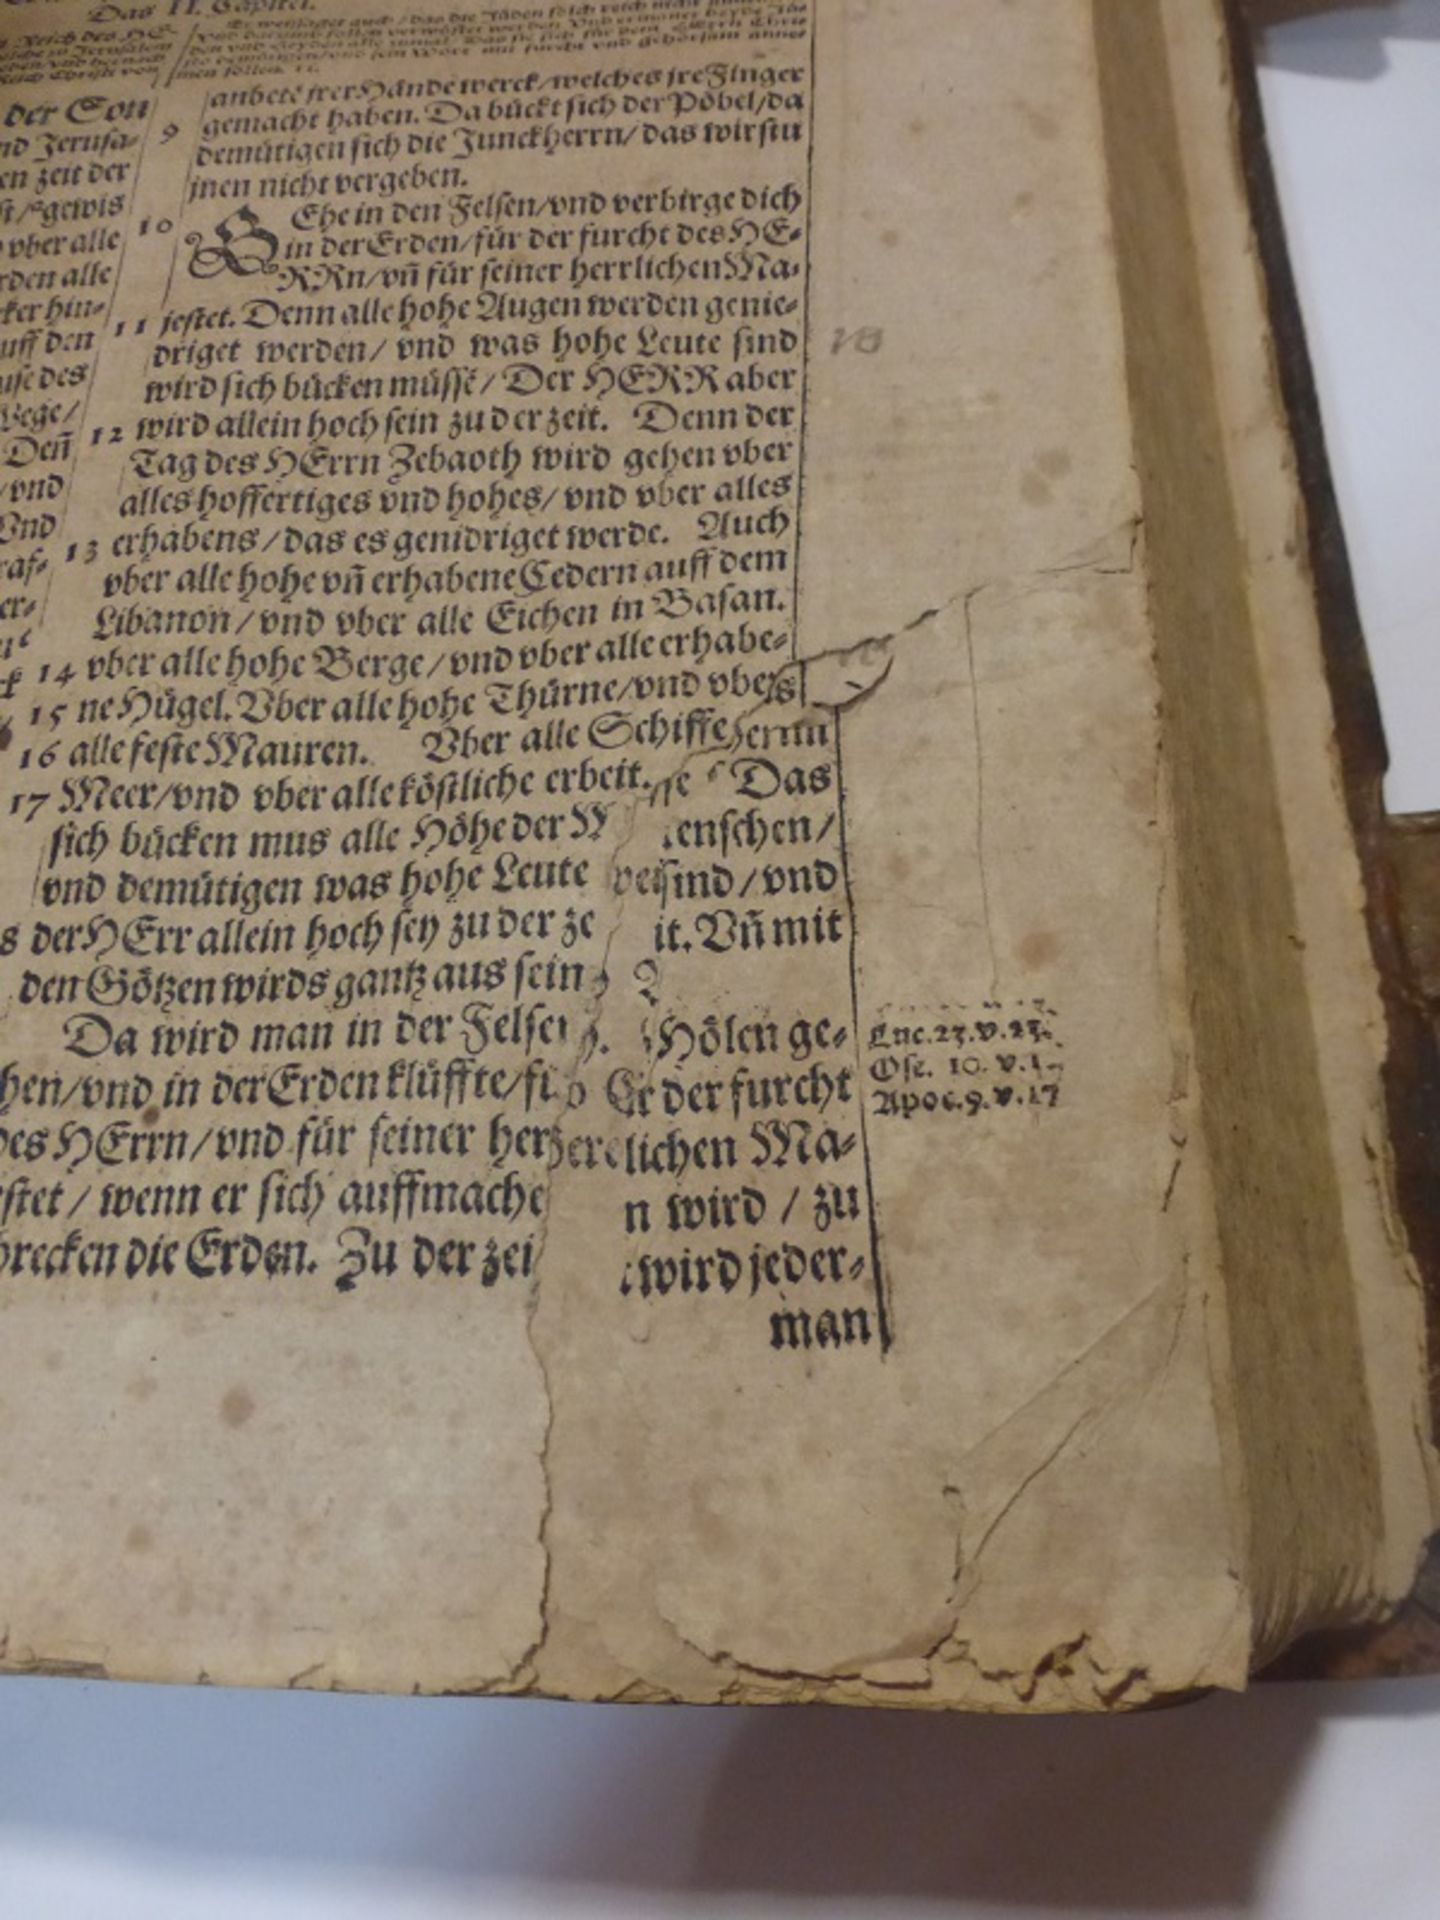 Das II. Capitel.
der Son
nd Jerusa-
en zeit der
gewis
vber alle
rden alle
cker hin-
auff den
use des
Wege/
Deñ
/vnd
Vnd
anbetē jrer Hände werck/welches jre Finger
9 gemacht haben. Da bückt sich der Pöbel/da
demütigen sich die Junckherrn/das wirstu
jnen nicht vergeben.
10 GEhe in den Felsen/vnd verbirge dich
in der Erden/für der furcht des HE-
RRn/vñ für seiner herrlichen Ma-
11 jestet. Denn alle hohe Augen werden genie-
driget werden/ vnd was hohe Leute sind
wird sich bücken müssē/ Der HERR aber
12 wird allein hoch sein zu der zeit. Denn der
Tag des HErrn Zebaoth wird gehen vber
alles hoffertiges vnd hohes/ vnd vber alles
13 erhabens/das es genidriget werde. Auch
vber alle hohe vñ erhabene Cedern auff dem
Libanon/vnd vber alle Eichen in Basan.
14 vber alle hohe Berge/vnd vber alle erhabe-
15 ne Hügel. Vber alle hohe Thürne/vnd vber
16 alle feste Mauren. Vber alle Schiffe im
17 Meer/vnd vber alle köstliche erbeit. Das
sich bücken mus alle Höhe der Menschen/
vnd demütigen was hohe Leute sind/vnd
s der HErr allein hoch sey zu der zeit. Vñ mit
den Götzen wirds gantz aus sein
Da wird man in der Felsen Hölen ge-
hen/vnd in der Erden klüffte/für der furcht
des HErrn/vnd für seiner herrlichen Ma-
stet/wenn er sich auffmachen wird / zu
brecken die Erden. Zu der zeit wird jeder-
man
Luc.23.v.23.
Ose. 10. v.
Apoc.9.v.17